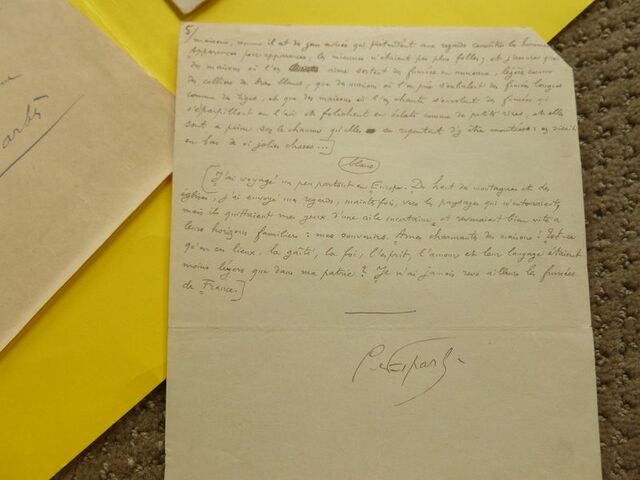 5/
maisons, comme il est de gens avisés qui prétendent aux regards connaître les hommes.
Apparences pour apparences, les miennes n'étaient pas plus folles; et j'assure que
des maisons où l'on aime sortent des fumées en anneaux, légers comme
des colliers de bras blancs, que de maisons où l'on prie s'exhalent des fumées longues
comme des tiges, et que des maisons où l'on chante s'envolent des fumées qui
s'éparpillent en l'air et folichent en éclats comme de petits rires, et elles
sont à peine sur le chaume qu'elles se repentent d'y être montées: on riait
en bas de si jolies choses...
blanc
[J'ai voyagé un peu partout en Europe. Du haut de montagnes et des
églises, j'ai envoyé mes regards, maintes fois, vers les paysages qui m'entouraient,
mais ils quittaient mes yeux d'une aile incertaine et revenaient bien vite à
leurs horizons familiers: mes souvenirs. Ames charmantes des maisons! Est-ce
qu'en ces lieux, la gaîté, la foi, l'esprit, l'amour et leur langage étaient
moins légers que dans ma patrie? Je n'ai jamais revu ailleurs les fumées
de France.]